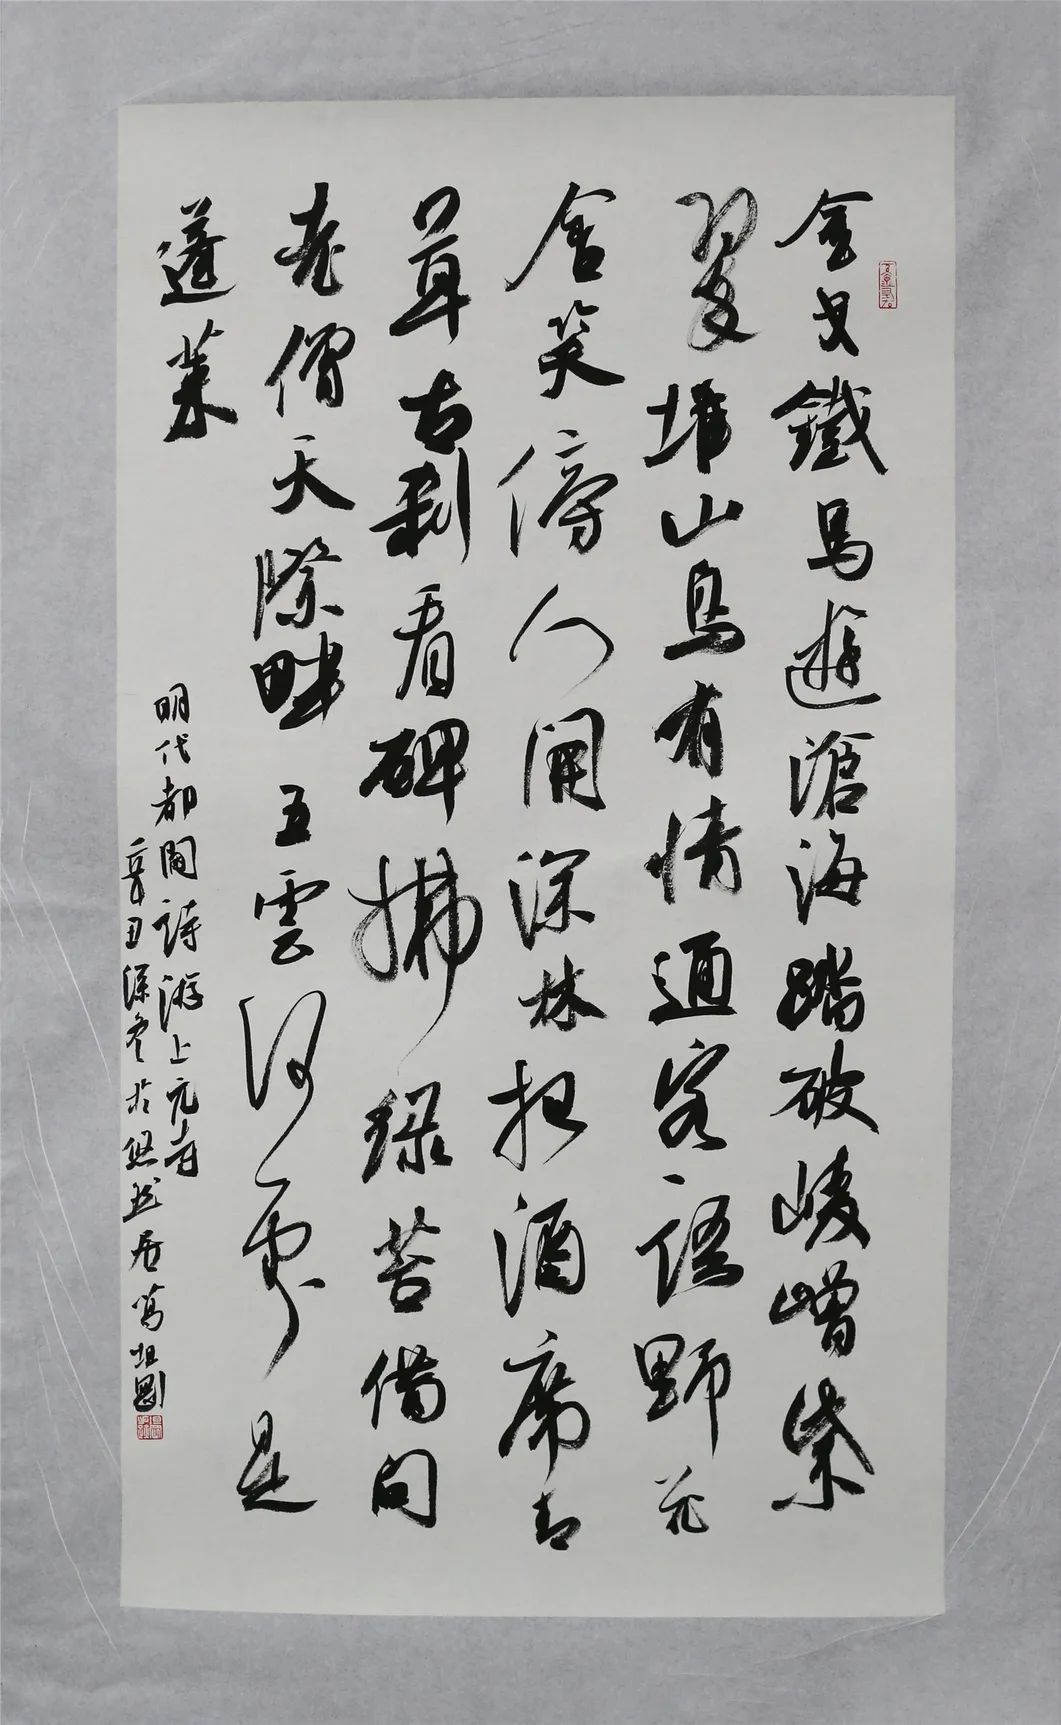 金戈鐵馬遊滄海踏破崚嶒紫
翠堆山鳥有情通客語野花
含笑傍人開深林把酒席青
茸古刹看碑拂綠苔借問
老僧天際畔五雲何處是
蓬萊
明代都閫詩游上元寺
辛丑深冬於悠然居萬坦剛